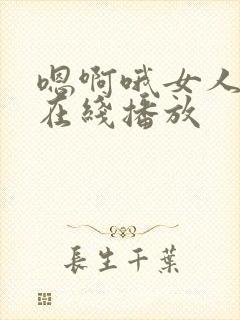 嗯啊哦女人
在綫播放
長生千葉